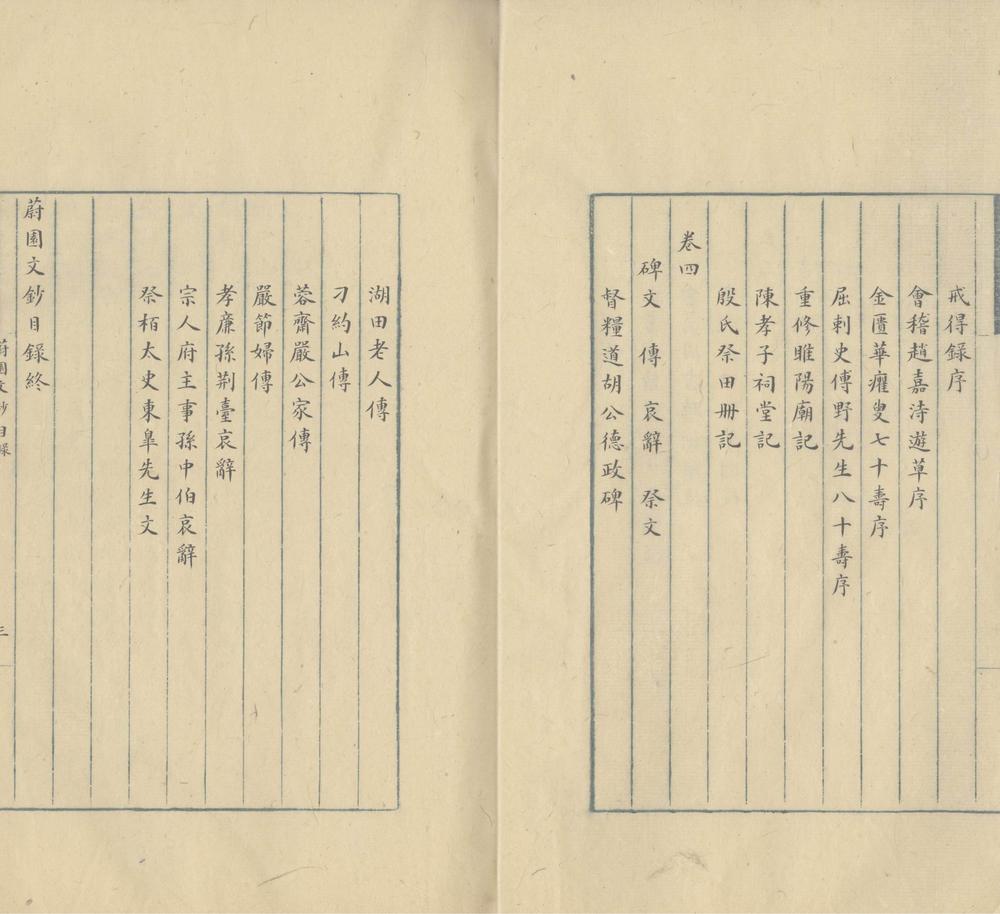 戒得録序
會稽趙嘉洔遊草序
金匱華癯叟七十壽序
屈刺史傅野先生八十壽序
重修睢陽廟記
陳孝子祠堂記
殷氏祭田册記
卷四
碑文 傳 哀辭 祭文
督糧道胡公德政碑
湖田老人傳
刁約山傳
蓉齋嚴公家傳
嚴節婦傳
孝廉孫荆臺哀辭
宗人府主事孫中伯哀辭
祭栢太史東臯先生文
蔚園文鈔目録終
蔚園文鈔目録
三